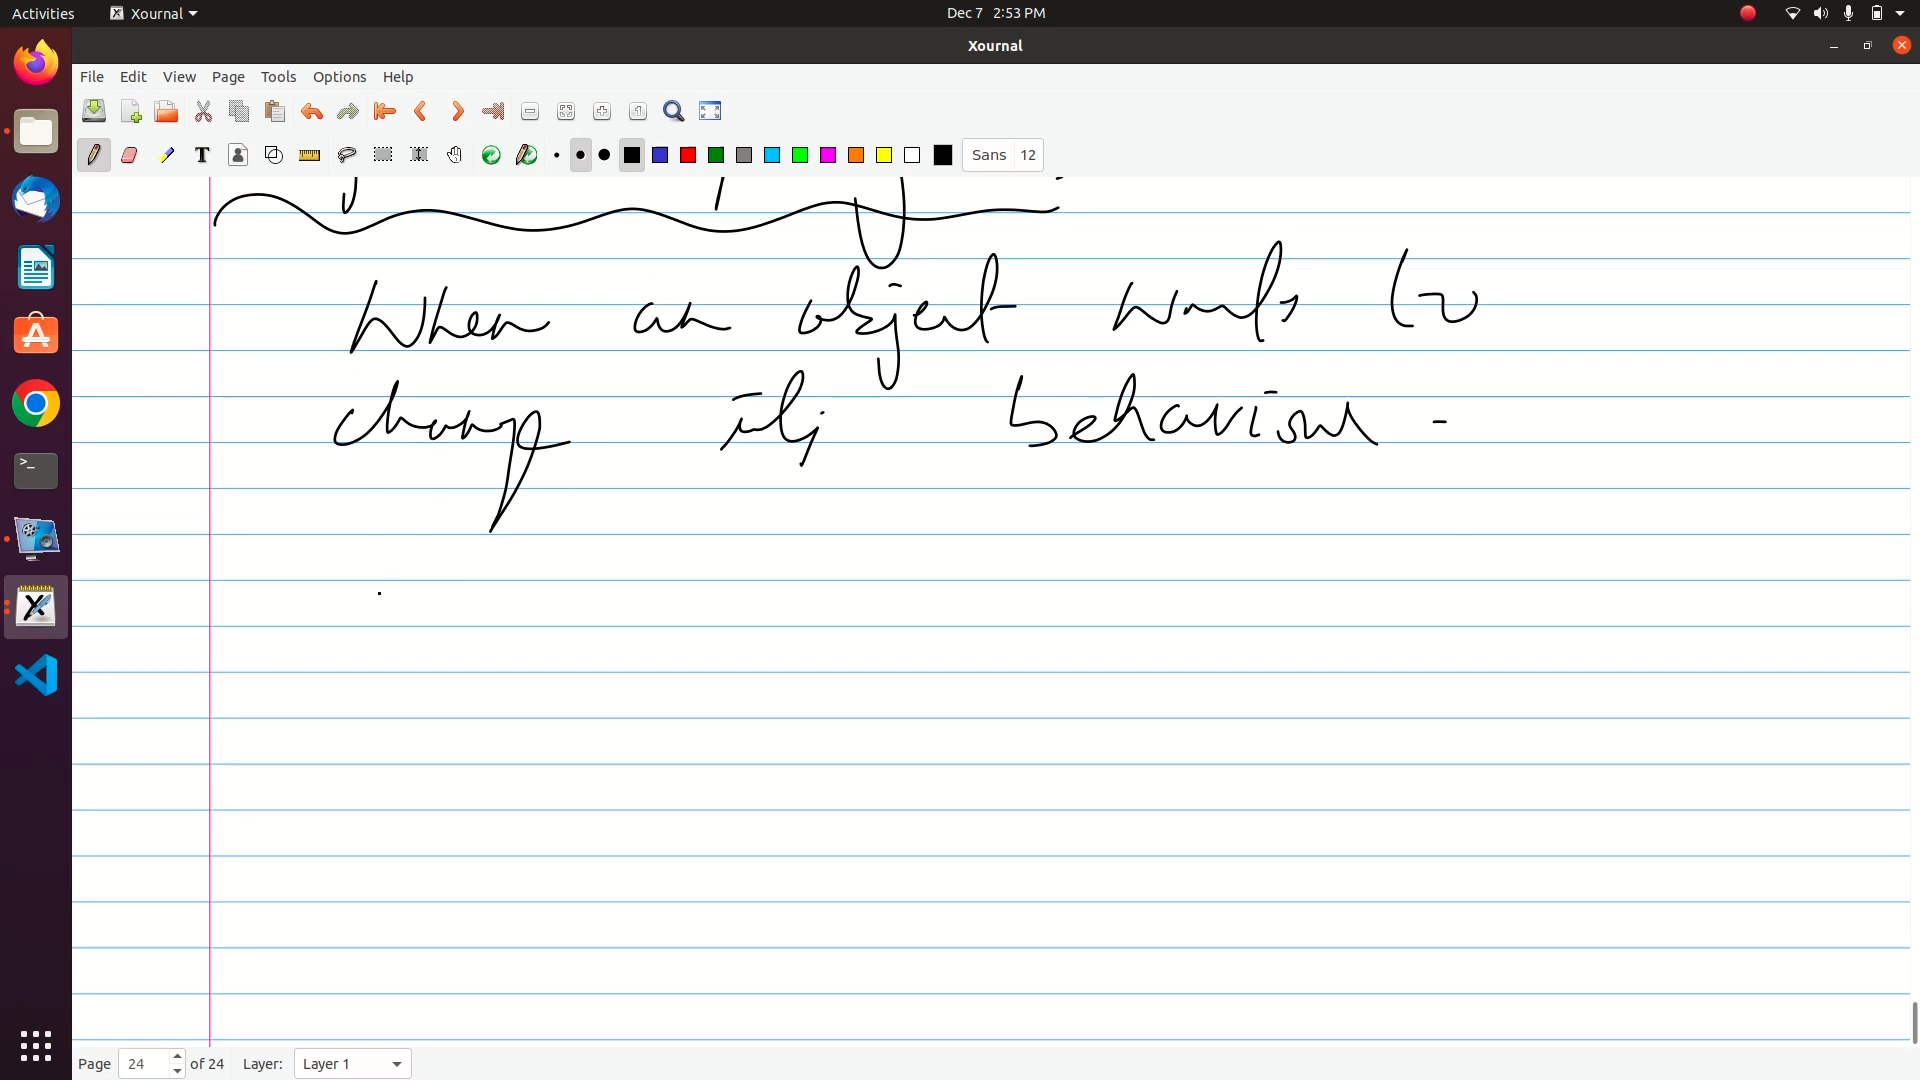 Activities Xournal Dec 7 2:53 PM
Xournal
File Edit View Page Tools Options Help
T Sans 12
When an object wants to
change its behaviour -
Page 24 of 24 Layer: Layer 1